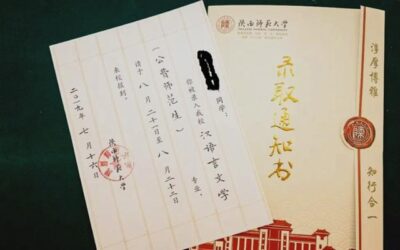 同学：
你被录入我校 汉语言文学 专业。
（公费师范生）
请于 八月二十一日至 八月二十二日
来校报到。
陕西师范大学
二〇一九年 七月十六日
陕西师范大学
SHAANXI NORMAL UNIVERSITY
录取通知书
淳厚博雅
知行合一